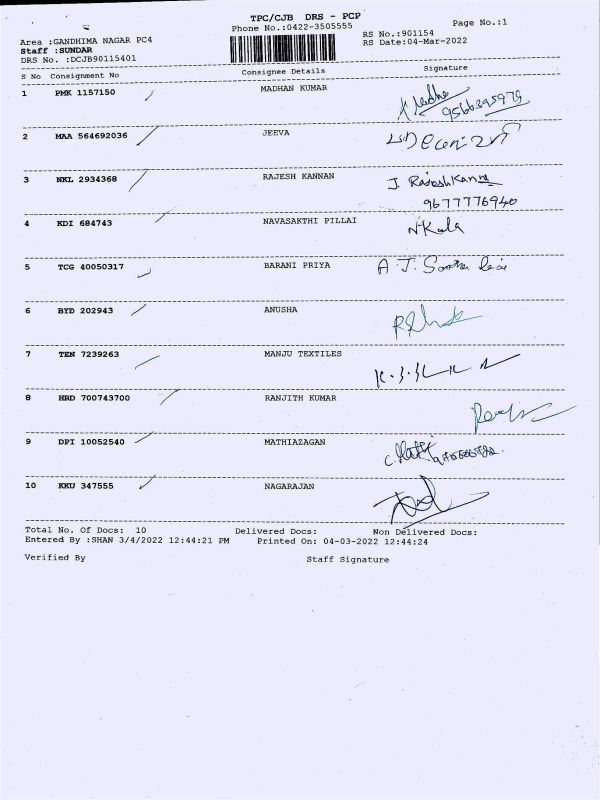 TPC/CJB DRS - PCP
Page No.:1
Phone No.:0422-3505555
RS No.:901154
Area :GANDHIMA NAGAR PC4
RS Date:04-Mar-2022
Staff :SUNDAR
DRS No. :DCJB90115401
S No Consignment No Consignee Details Signature
1 PMK 1157150 MADHAN KUMAR
9566395979
2 MAA 564692036 JEEVA
3 NKL 2934368 RAJESH KANNAN J RajeshKanna
9677776940
4 KDI 684743 NAVASAKTHI PILLAI N Kala
5 TCG 40050317 BARANI PRIYA
6 BYD 202943 ANUSHA
7 TEN 7239263 MANJU TEXTILES
8 HRD 700743700 RANJITH KUMAR
9 DPI 10052540 MATHIAZAGAN
10 KKU 347555 NAGARAJAN
Total No. Of Docs: 10 Delivered Docs: Non Delivered Docs:
Entered By :SHAN 3/4/2022 12:44:21 PM Printed On: 04-03-2022 12:44:24
Verified By Staff Signature